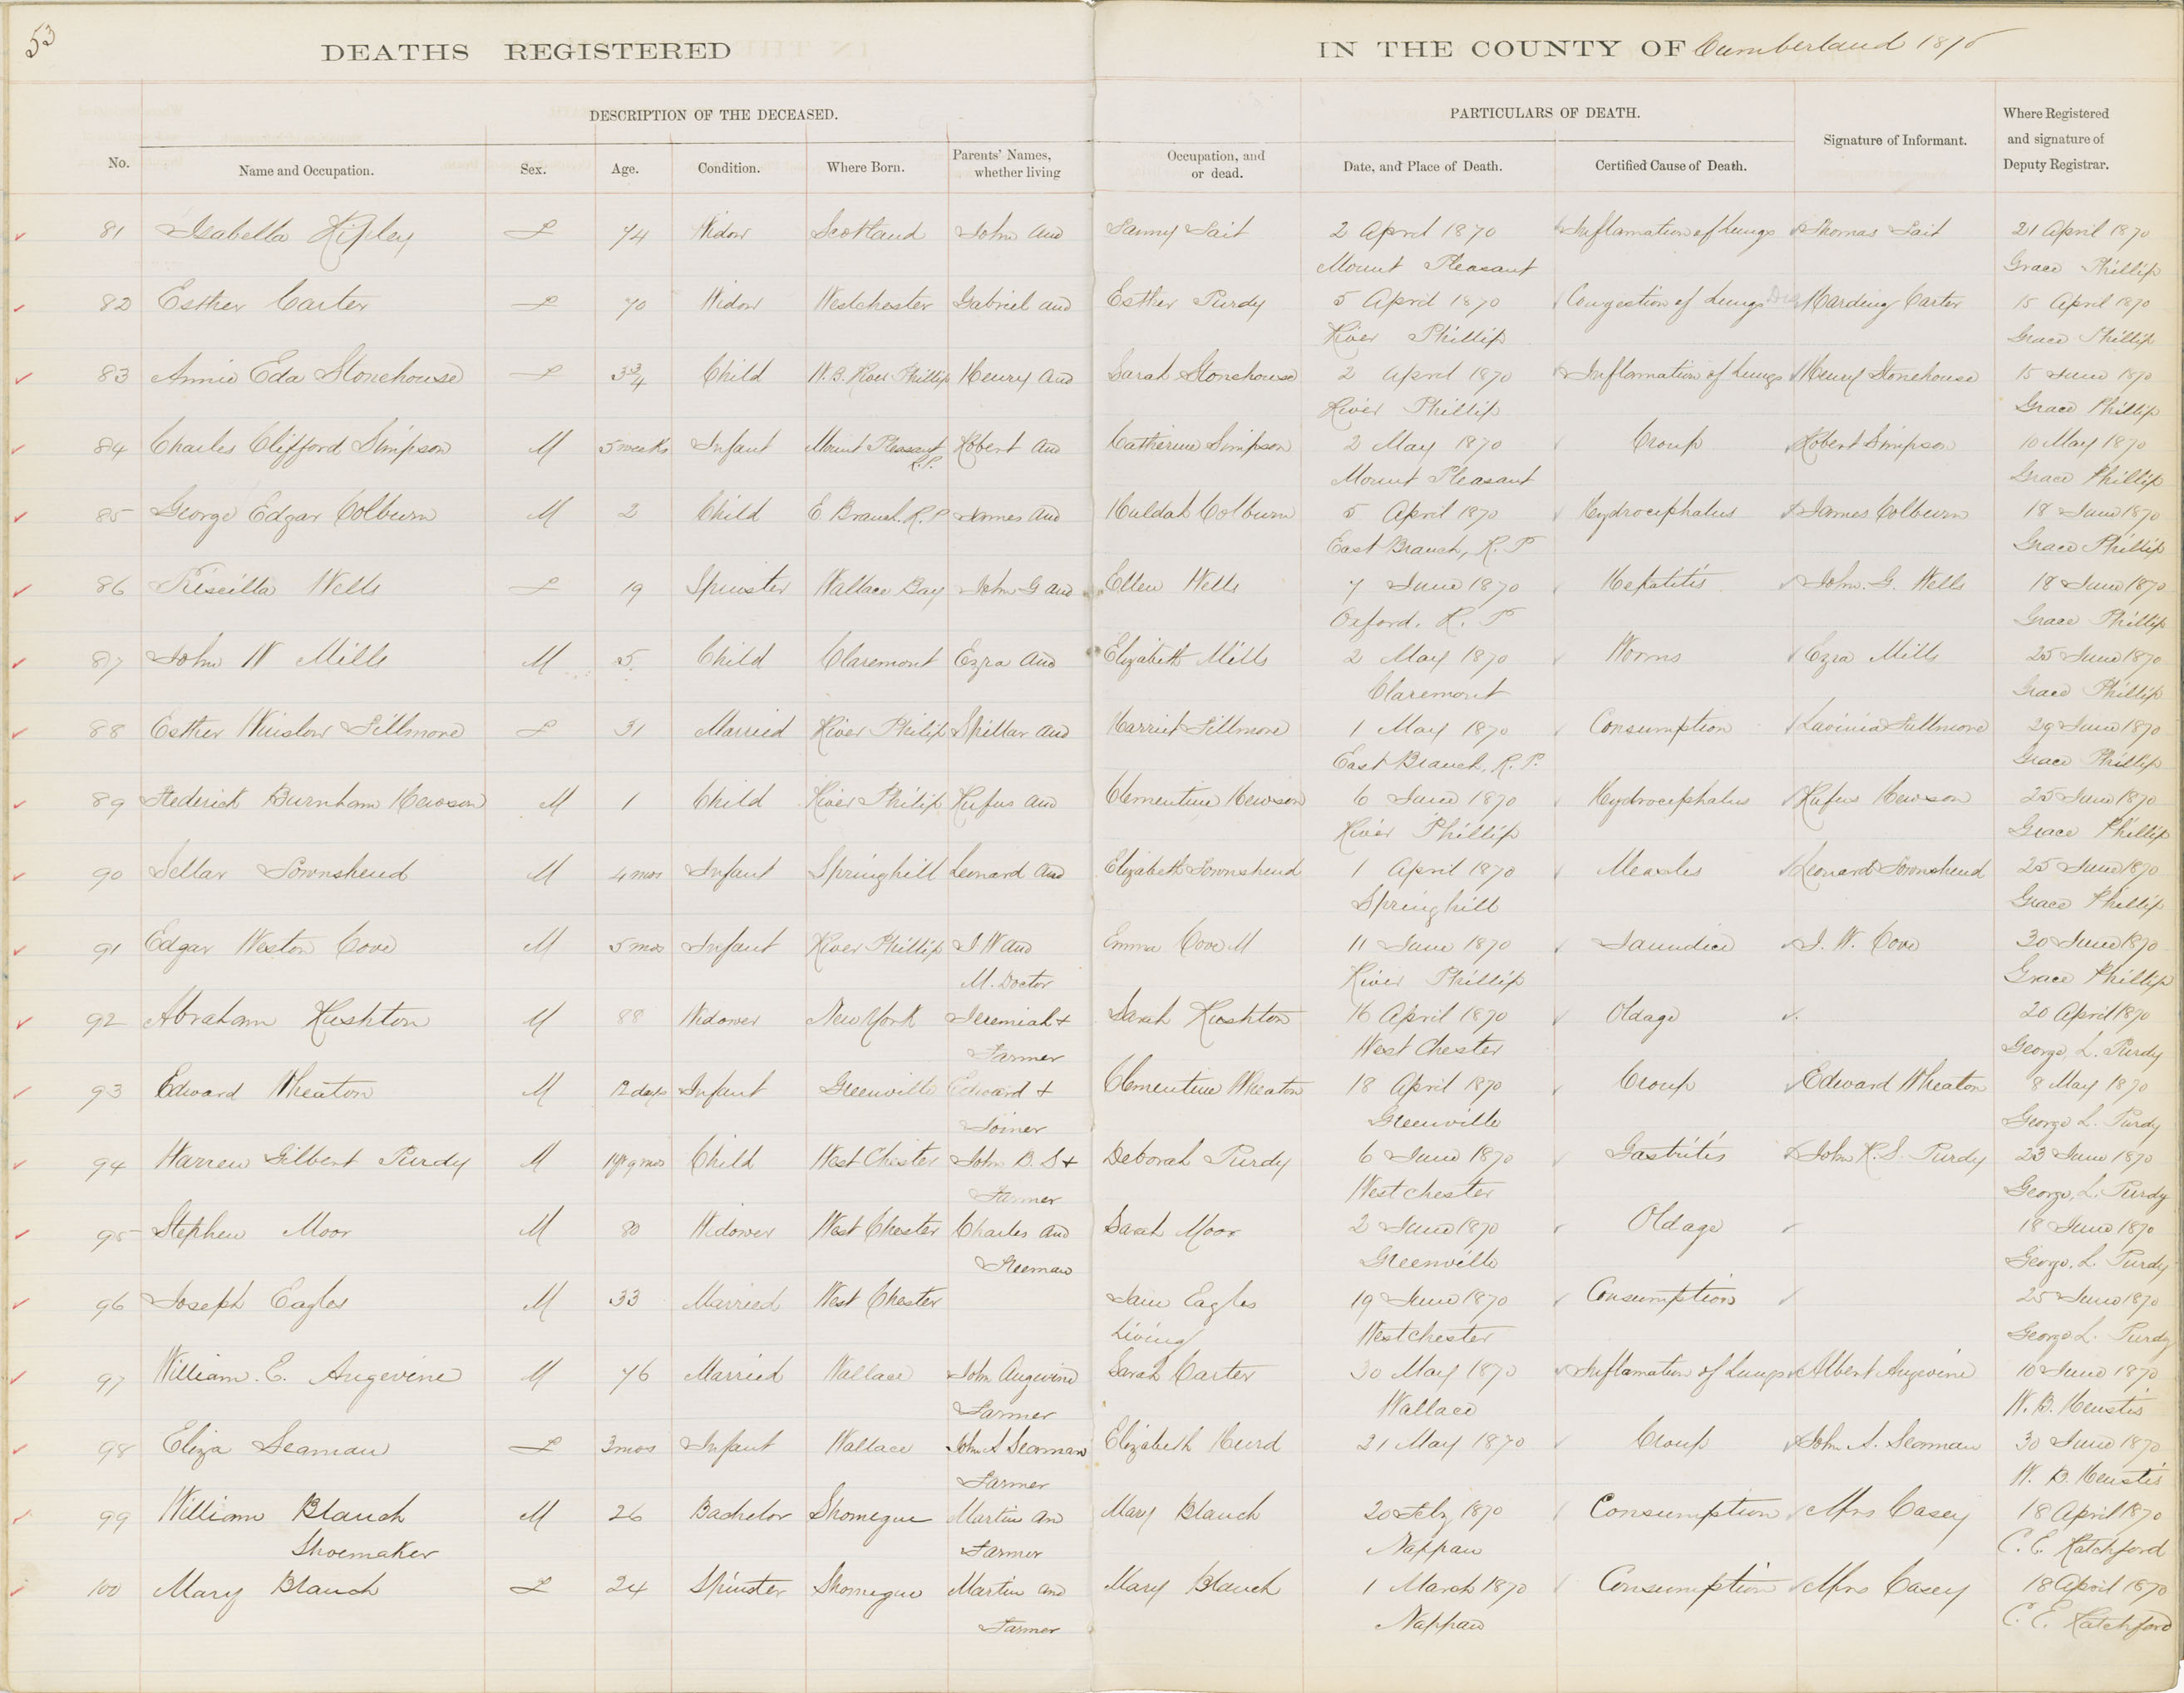 53
DEATHS REGISTERED IN THE COUNTY OF Cumberland 1870
DESCRIPTION OF THE DECEASED. PARTICULARS OF DEATH. Where Registered and signature of Deputy Registrar.
No. Name and Occupation. Sex. Age. Condition. Where Born. Parents' Names, whether living Occupation, and or dead. Date, and Place of Death. Certified Cause of Death. Signature of Informant.
81 Isabella Ripley F 74 Widow Scotland John and Fanny Tait 2 April 1870 Inflamation of Lungs Thomas Tait 21 April 1870
Mount Pleasant Grace Phillip
82 Esther Carter F 70 Widow Westchester Gabriel and Esther Purdy 5 April 1870 Congestion of Lungs Harding Carter 15 April 1870
River Phillip Grace Phillip
83 Annie Eda Stonehouse F 3 3/4 Child W.B. River Phillip Henry and Sarah Stonehouse 2 April 1870 Inflamation of Lungs Henry Stonehouse 15 June 1870
River Phillip Grace Phillip
84 Charles Clifford Simpson M 5 weeks Infant Mount Pleasant R.P. Robert and Catherine Simpson 2 May 1870 Croup Robert Simpson 10 May 1870
Mount Pleasant Grace Phillip
85 George Edgar Colburn M 2 Child E Branch. R.P James and Huldah Colburn 5 April 1870 Hydrocephalus James Colburn 18 June 1870
East Branch, R. P Grace Phillip
86 Priscilla Wells F 19 Spinster Wallace Bay John G and Ellen Wells 7 June 1870 Hepatitis John. G. Wells 18 June 1870
Oxford. R. P Grace Phillip
87 John W Mills M 5 Child Claremont Ezra and Elizabeth Mills 2 May 1870 Worms Ezra Mills 25 June 1870
Claremont Grace Phillip
88 Esther Winslow Fillmore F 31 Married River Philip and Harriet Fillmore 1 May 1870 Consumption Lavinia Fillmore 29 June 1870
East Branch. R. P. Grace Phillip
89 Frederick Burnham Hewson M 1 Child River Philip Rufus and Clementine Hewson 6 June 1870 Hydrocephalus Rufus Hewson 25 June 1870
River Phillip Grace Phillip
90 Townshend M 4 mos Infant Springhill Leonard and Elizabeth Townshend 1 April 1870 Measles Leonard Townshend 25 June 1870
Springhill Grace Phillip
91 Edgar Weston Cove M 5 mos Infant River Phillip J. W and Emma Cove M 11 June 1870 Jaundice J. W. Cove 30 June 1870
M. Doctor River Phillip Grace Phillip
92 Abraham Rushton M 88 Widower New York Jeremiah + Sarah Rushton 16 April 1870 Oldage 20 April 1870
Farmer West Chester George, L. Purdy
93 Edward Wheaton M 12 days Infant Greenville Edward + Clementine Wheaton 18 April 1870 Croup Edward Wheaton 8 May 1870
Joiner Greenville George L. Purdy
94 Warren Gilbert Purdy M 1 yr 9 mos Child West Chester John B. S + Deborah Purdy 6 June 1870 Gastritis John R. S. Purdy 23 June 1870
Farmer Westchester George, L. Purdy
95 Stephen Moor M 80 Widower West Chester Charles and Sarah Moor 2 June 1870 Old age 18 June 1870
Greenville George, L. Purdy
96 Joseph Eagles M 33 Married West Chester Jane Eagles 19 June 1870 Consumption 25 June 1870
Living Westchester George L. Purdy
97 William. E. Angevine M 76 Married Wallace John Angevine Sarah Carter 30 May 1870 Inflamation of Lungs Albert Angevine 10 June 1870
Farmer Wallace W. B. Heustis
98 Eliza Seaman F 3 mos Infant Wallace John A Seaman Elizabeth Hurd 21 May 1870 Croup John A. Seaman 30 June 1870
Farmer W. B. Heustis
99 William Blanch M 26 Bachelor Shomegue Martin and Mary Blanch 20 Feby 1870 Consumption Mrs Casey 18 April 1870
Shoemaker Farmer Nappan C. E. Ratchford
100 Mary Blanch F 24 Spinster Shomegue Martin and Mary Blanch 1 March 1870 Consumption Mrs Casey 18 April 1870
Farmer Nappan C. E. Ratchford